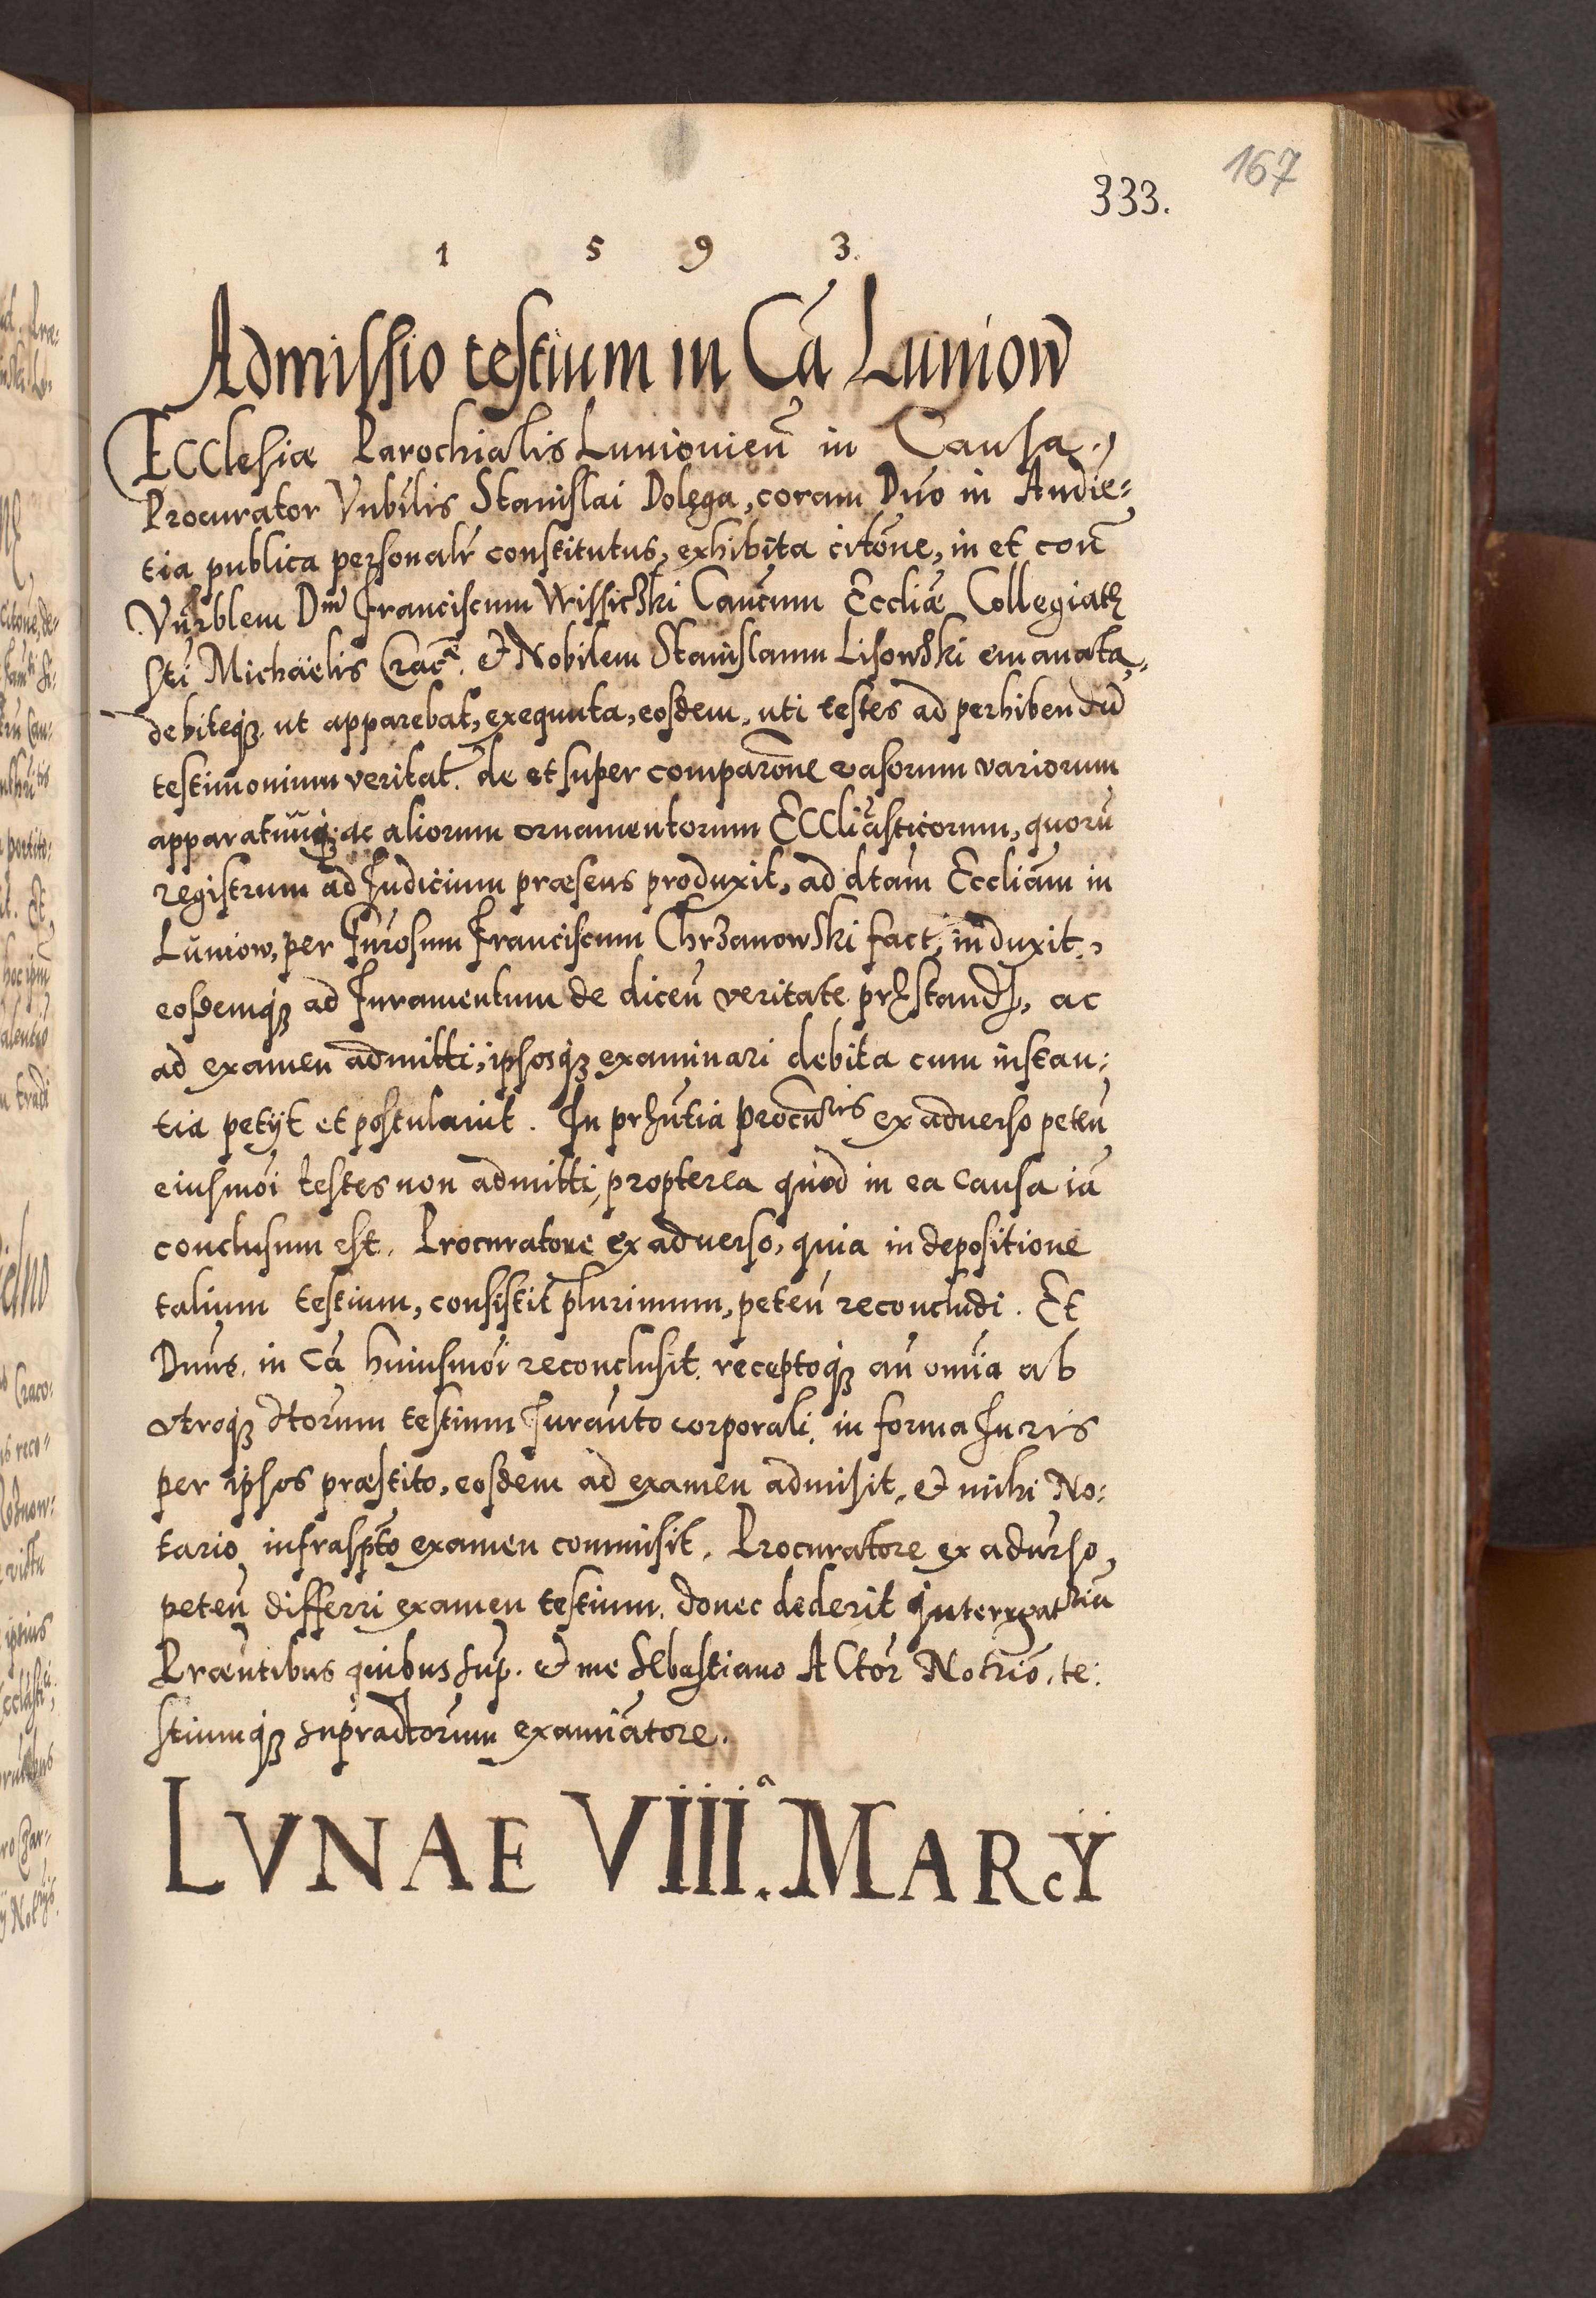 167
333.
1 5 9 3.
Admissio testium in Cā Luniow
ECClesiæ Parochialis Lunioviēn in Causa,
Procurator Vnbīlis Stanislai Dolęga, coram Dno in Audie=
tia publica personalr constitutus, exhibita citōne, in et con̄
Vnrblem Dnm Franciscum Wissicżki Cancum Eccliæ Collegiatę
Sti Michaëlis Cracā. et Nobilem Stanislaum Lisowski emanata,
debiteqз ut apparebat, exequuta, eosdem, uti testes ad perhibendū
testimonium veritat. de et super comparōne vasorum variorum
apparatuūqз ac aliorum ornamentorum ECCliāsticorum, quorū
registrum ad Iudicium præsens produxit, ad dtam Eccliam in
Luniow, per Furosum Franciscum Chrzanowski fact, induxit,
eosdemqз ad Iuramentum de diceñ veritate pręstandū, ac
ad examen admitti, ipsosqз examinari debita cum instan:
tia petijt et postulavit. In pręntia procuris ex adverso peteñ
eiusmōi testes non admitti, propterea quòd in ea causa iā
conclusum est. Procuratore ex adverso, quia in depositione
talium testium, consistit plurimum, peteñ reconcludi. Et
Dnus. in cā huiusmōi reconclusit receptoqз añ omīa ab
vtroqз dtorum testium Iuranto corporali, in forma Iuris
per ipsos præstito, eosdem ad examen admisit, et mihi No:
tario infrasp̄to examen commisit. Procuratore ex advrso,
peteñ differri examen testium, donec dederit Interrgatriā
Præntibus quibus sup. et me Sebastiano ACtor Notrio, te:
stiumqз supradtorum examiatore.
LVNAE VIIIIa. MARcY